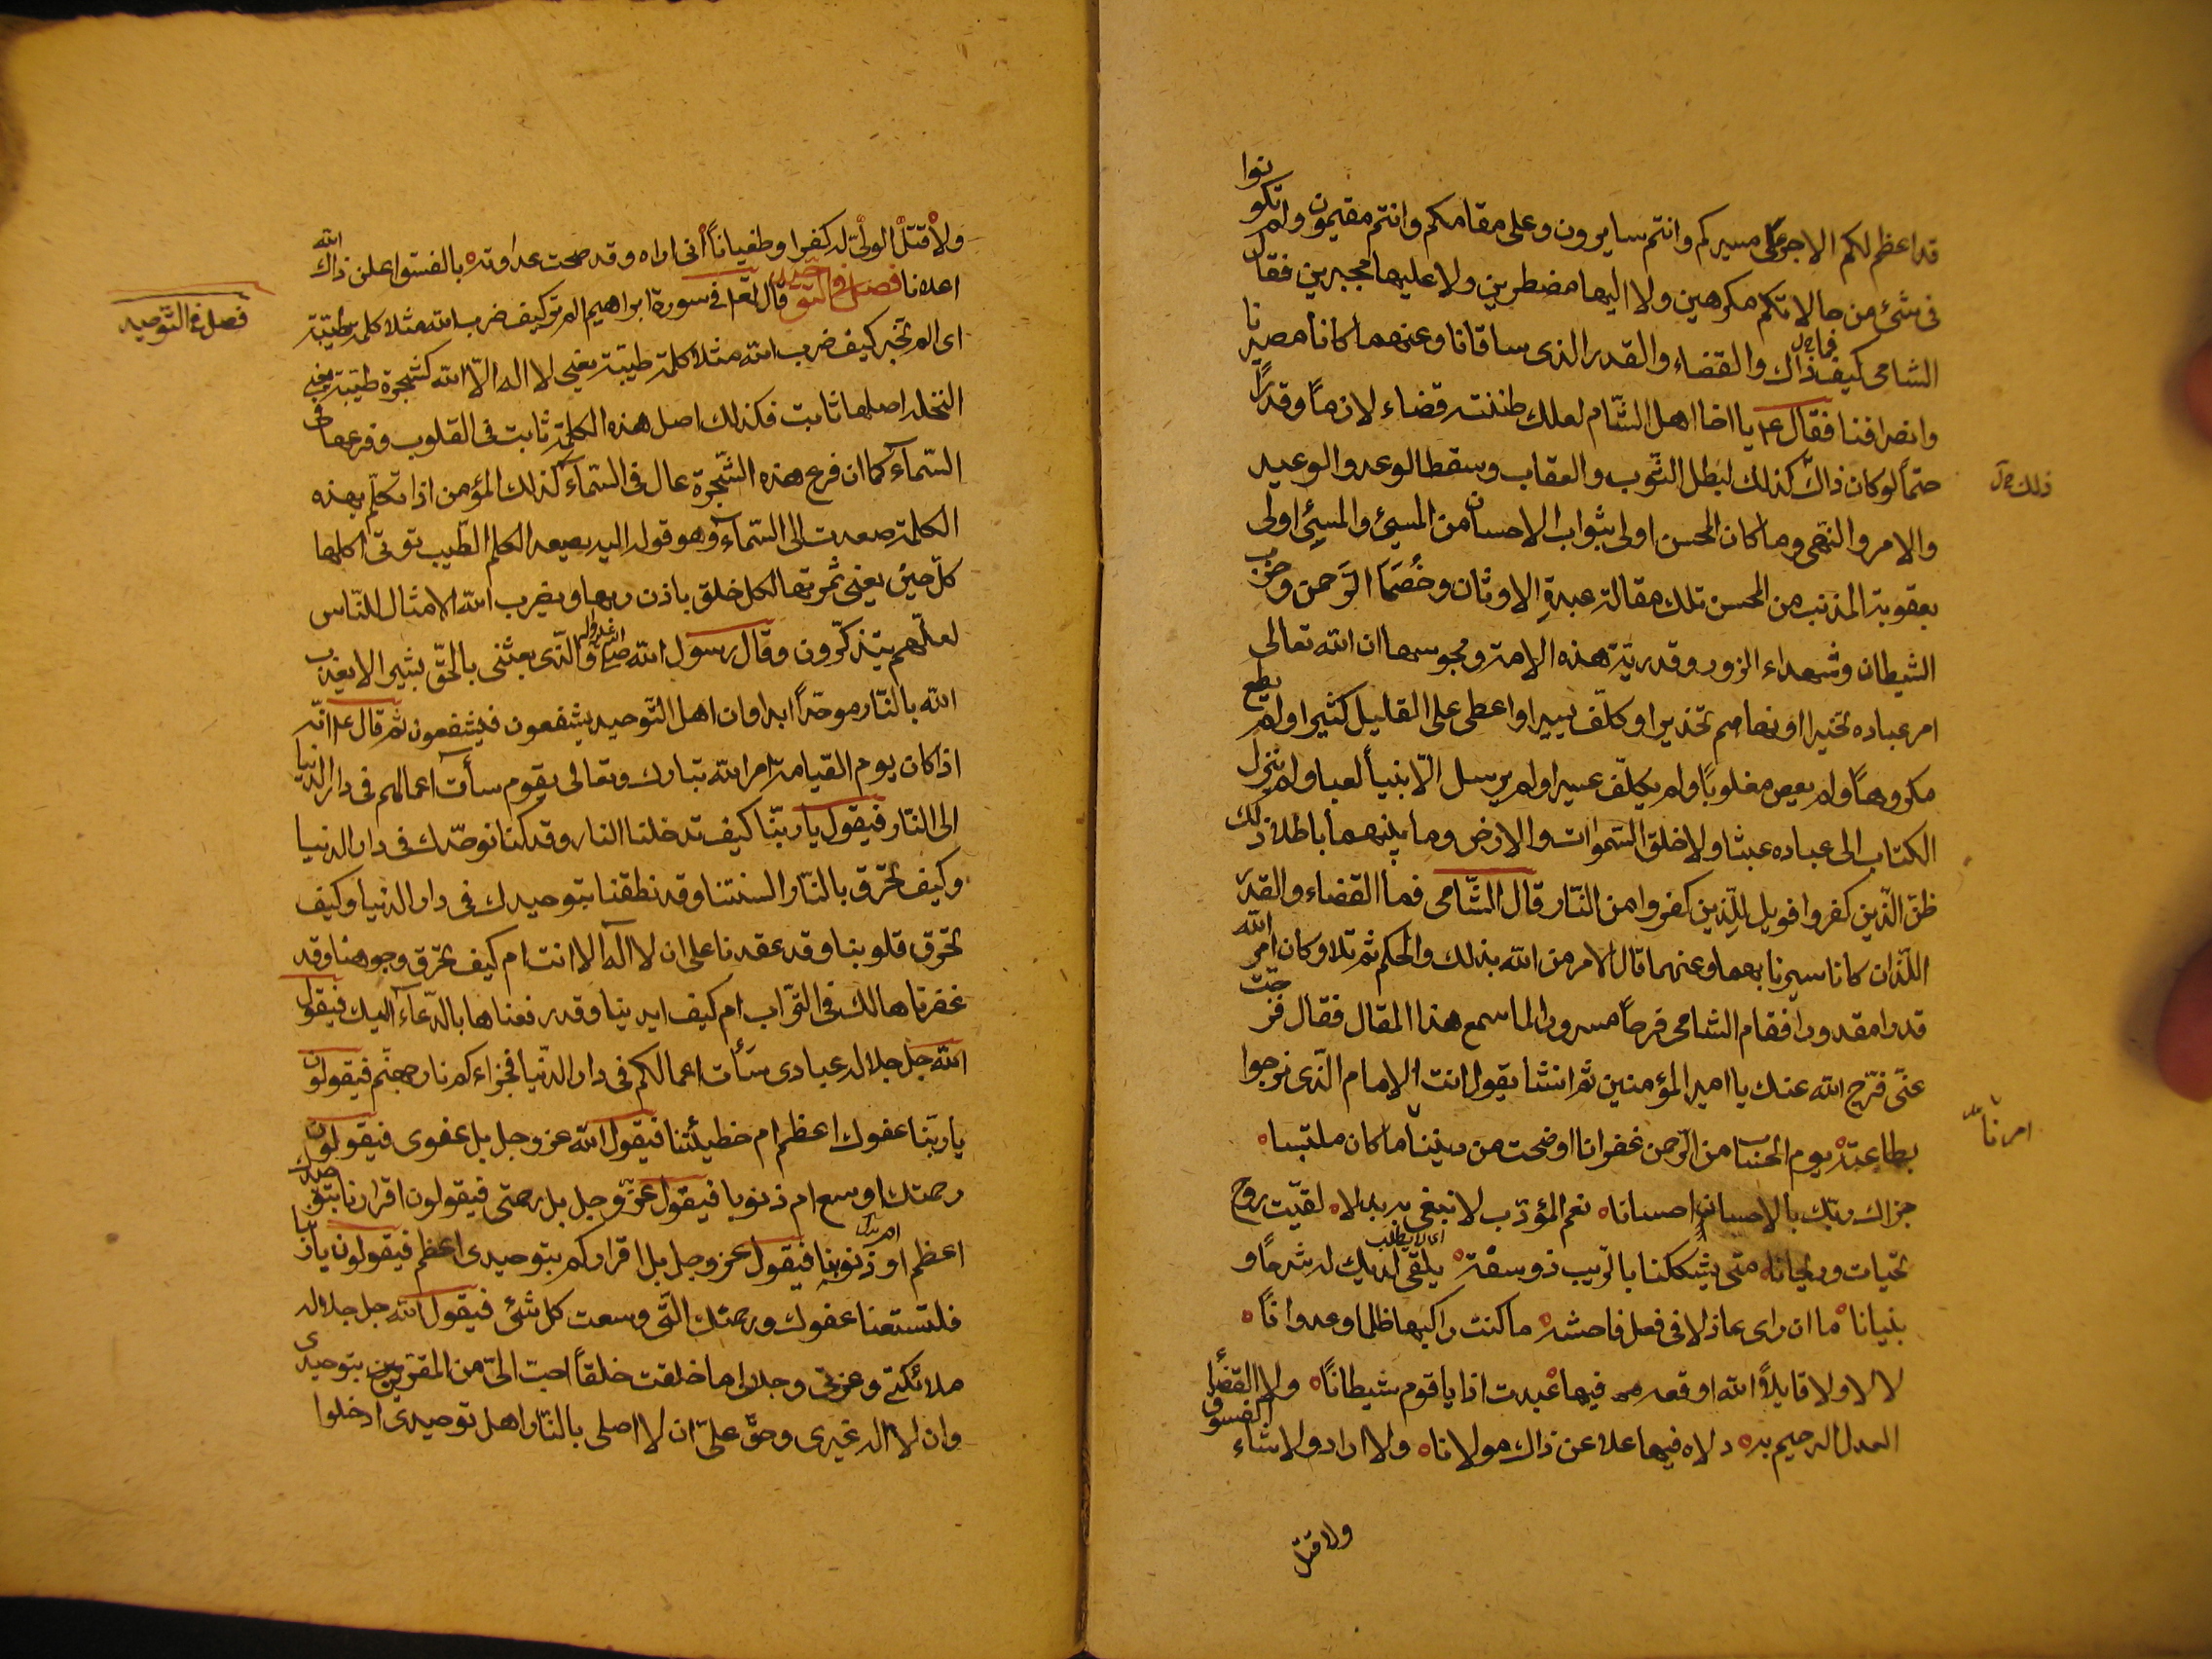 قد اعظم لكم الاجر على مسيركم وانتم سايرون وعلى مقامكم وانتم مقيمون ولم تكونوا
فى شئ من حالاتكم مكرهين ولا اليها مضطرين ولا عليها مجبرين فقال
الشامى كيف ذاك والقضاء والقدر الذى ساقانا وعنهما كانا مصيرنا
وانصرافنا فقال ع يا اخا اهل الشّام لعلك ظننته قضاء لازمًا وقدرًا
حتمًا لو كان ذاك كذلك لبطل الثوب والعقاب وسقط الوعد والوعيد
ذلك
والامر والنّهى وما كان المحسن اولى بثواب الاحسان من المسئ والمسئ اولى
بعقوبة المذنب من المحسن تلك مقالة عبدةِ الاوثان وخُصَمَآ الرّحمن وحزب
الشيطان وشهداء الزور وقدرية هذه الامة ومجوسها ان الله تعالى
امر عباده تخيرا ونهاهم تحذيرا وكلّف يسيرا واعطى على القليل كثيرا ولم يطع
مكروهًا ولم يعص مغلوبًا ولم يكلّف عسيرا ولم يرسل الانبيأ لعبا ولم ينزل
الكتاب الى عباده عبثا ولا خلق السّموات والارض وما بينهما باطلا ذلك
ظنّ الّذين كفروا فويل للّذين كفروا من النّار قال الشّامى فما القضاء والقدر
اللّذان كانا سيرنا بهما وعنهما قال الامر من الله بذلك والحكم ثم تلا وكان امر الله
قدرا مقدورا فقام الشامى فرحًا مسرورا لما سمع هذا المقال فقال فرّجت
عنّى فرّج الله عنك يا امير المؤمنين ثم انشا يقول انت الامام الّذى نرجوا
بطاعته يوم الحساب من الرّحمن غفرانا اوضحت من ديننا ما كان ملتبسا
امرنا
جزاك ربّك بالاحسان احسانا نعم المؤدّب لا نبغى به بدلا لقيّت روح
اى لا يطلب
تحيات وريحانا متى يشككنا بالرّيب ذو سفه يلقى لديك له شرحًا و
بنيانا ما ان راى عاذلا فى فعل فاحشه ما كنت راكبها ظلما وعدوانًا
لا لا ولا قايلاً الله اوقعه فيها عبدت اذا يا قوم شيطانًا ولا القضا
العدل الرحيم به دلاه فيها علا عن ذاك مولانا ولا اراد ولا شاء الفسوق
ولا قتل
ولا قتل الولىّ له كفرا وطغيانًا أنى اراه وقد صحت عداوته بالفسق اعلن ذاك الله
اعلانا فصل فى التوحيد قال الله تعا فى سورة ابراهيم الم تر كيف ضرب الله مثلا كلمة طيّبة
فصل فى التّوحيد
اى الم تخبر كيف ضرب الله مثلا كلمة طيّبة يعنى لا اله الّا الله كشجرة طيّبة يعنى
النخلة اصلها ثابت فكذلك اصل هذه الكلمة ثابت فى القلوب وفرعها فى
السّمآء كما ان فرع هذه الشّجرة عال فى السّمآء كذلك المؤمن اذا تكلّم بهذه
الكلمة صعدت الى السّمآء وهو قوله اليه يصعد الكلم الطّيب توتى اكلها
كلّ حين يعنى ثمرتها لكل خلق باذن ربها ويضرب الله الامثال للنّاس
لعلّهم يتذكّرون وقال رسول الله والّذى بعثنى بالحقّ بشيرا لا يعذب
الله بالنّار موحّدًا ابدا وان اهل التّوحيد يشفعون فيشفعون ثم قال ع انّه
اذا كان يوم القيامة امر الله تبارك وتعالى بقوم سأت اعمالهم فى دار الدنيا
الى النّار فيقول يا ربّنا كيف تدخلنا النار وقد كنا نوحّدك فى دار الدنيا
وكيف تحرق بالنّار السنتنا وقد نطقنا بتوحيدك فى دار الدنيا وكيف
تحرق قلوبنا وقد عقدنا على ان لا آله الا انت ام كيف تحرق وجوهنا وقد
غفرناها لك فى التّراب ام كيف ايدينا وقد رفعناها بالدّعآء اليك فيقول
الله جلّ جلاله عبادى سأت اعمالكم فى دار الدّنيا فجزاءكم نار جهنّم فيقولون
يا ربّنا عفوك اعظم ام خطيئتنا فيقول الله عز وجل بل عفوى فيقولون
رحمتك اوسع ام ذنوبنا فيقول عزّ وجل بل رحمتى فيقولون اقرارنا بتوحيدك
اعظم او ذنوبنا فيقول عز وجل بل اقراركم بتوحيدى اعظم فيقولون يا ربّنا
فلتسعنا عفوك ورحمتك الّتى وسعت كل شئ فيقول الله جل جلاله
ملائكتى وعزتى وجلالى ما خلقت خلقًا احبّ الىّ من المقرّين بتوحيدى
وان لا اله غيرى وحقّ علىّ ان لا اصلى بالنّار اهل توحيدى ادخلوا